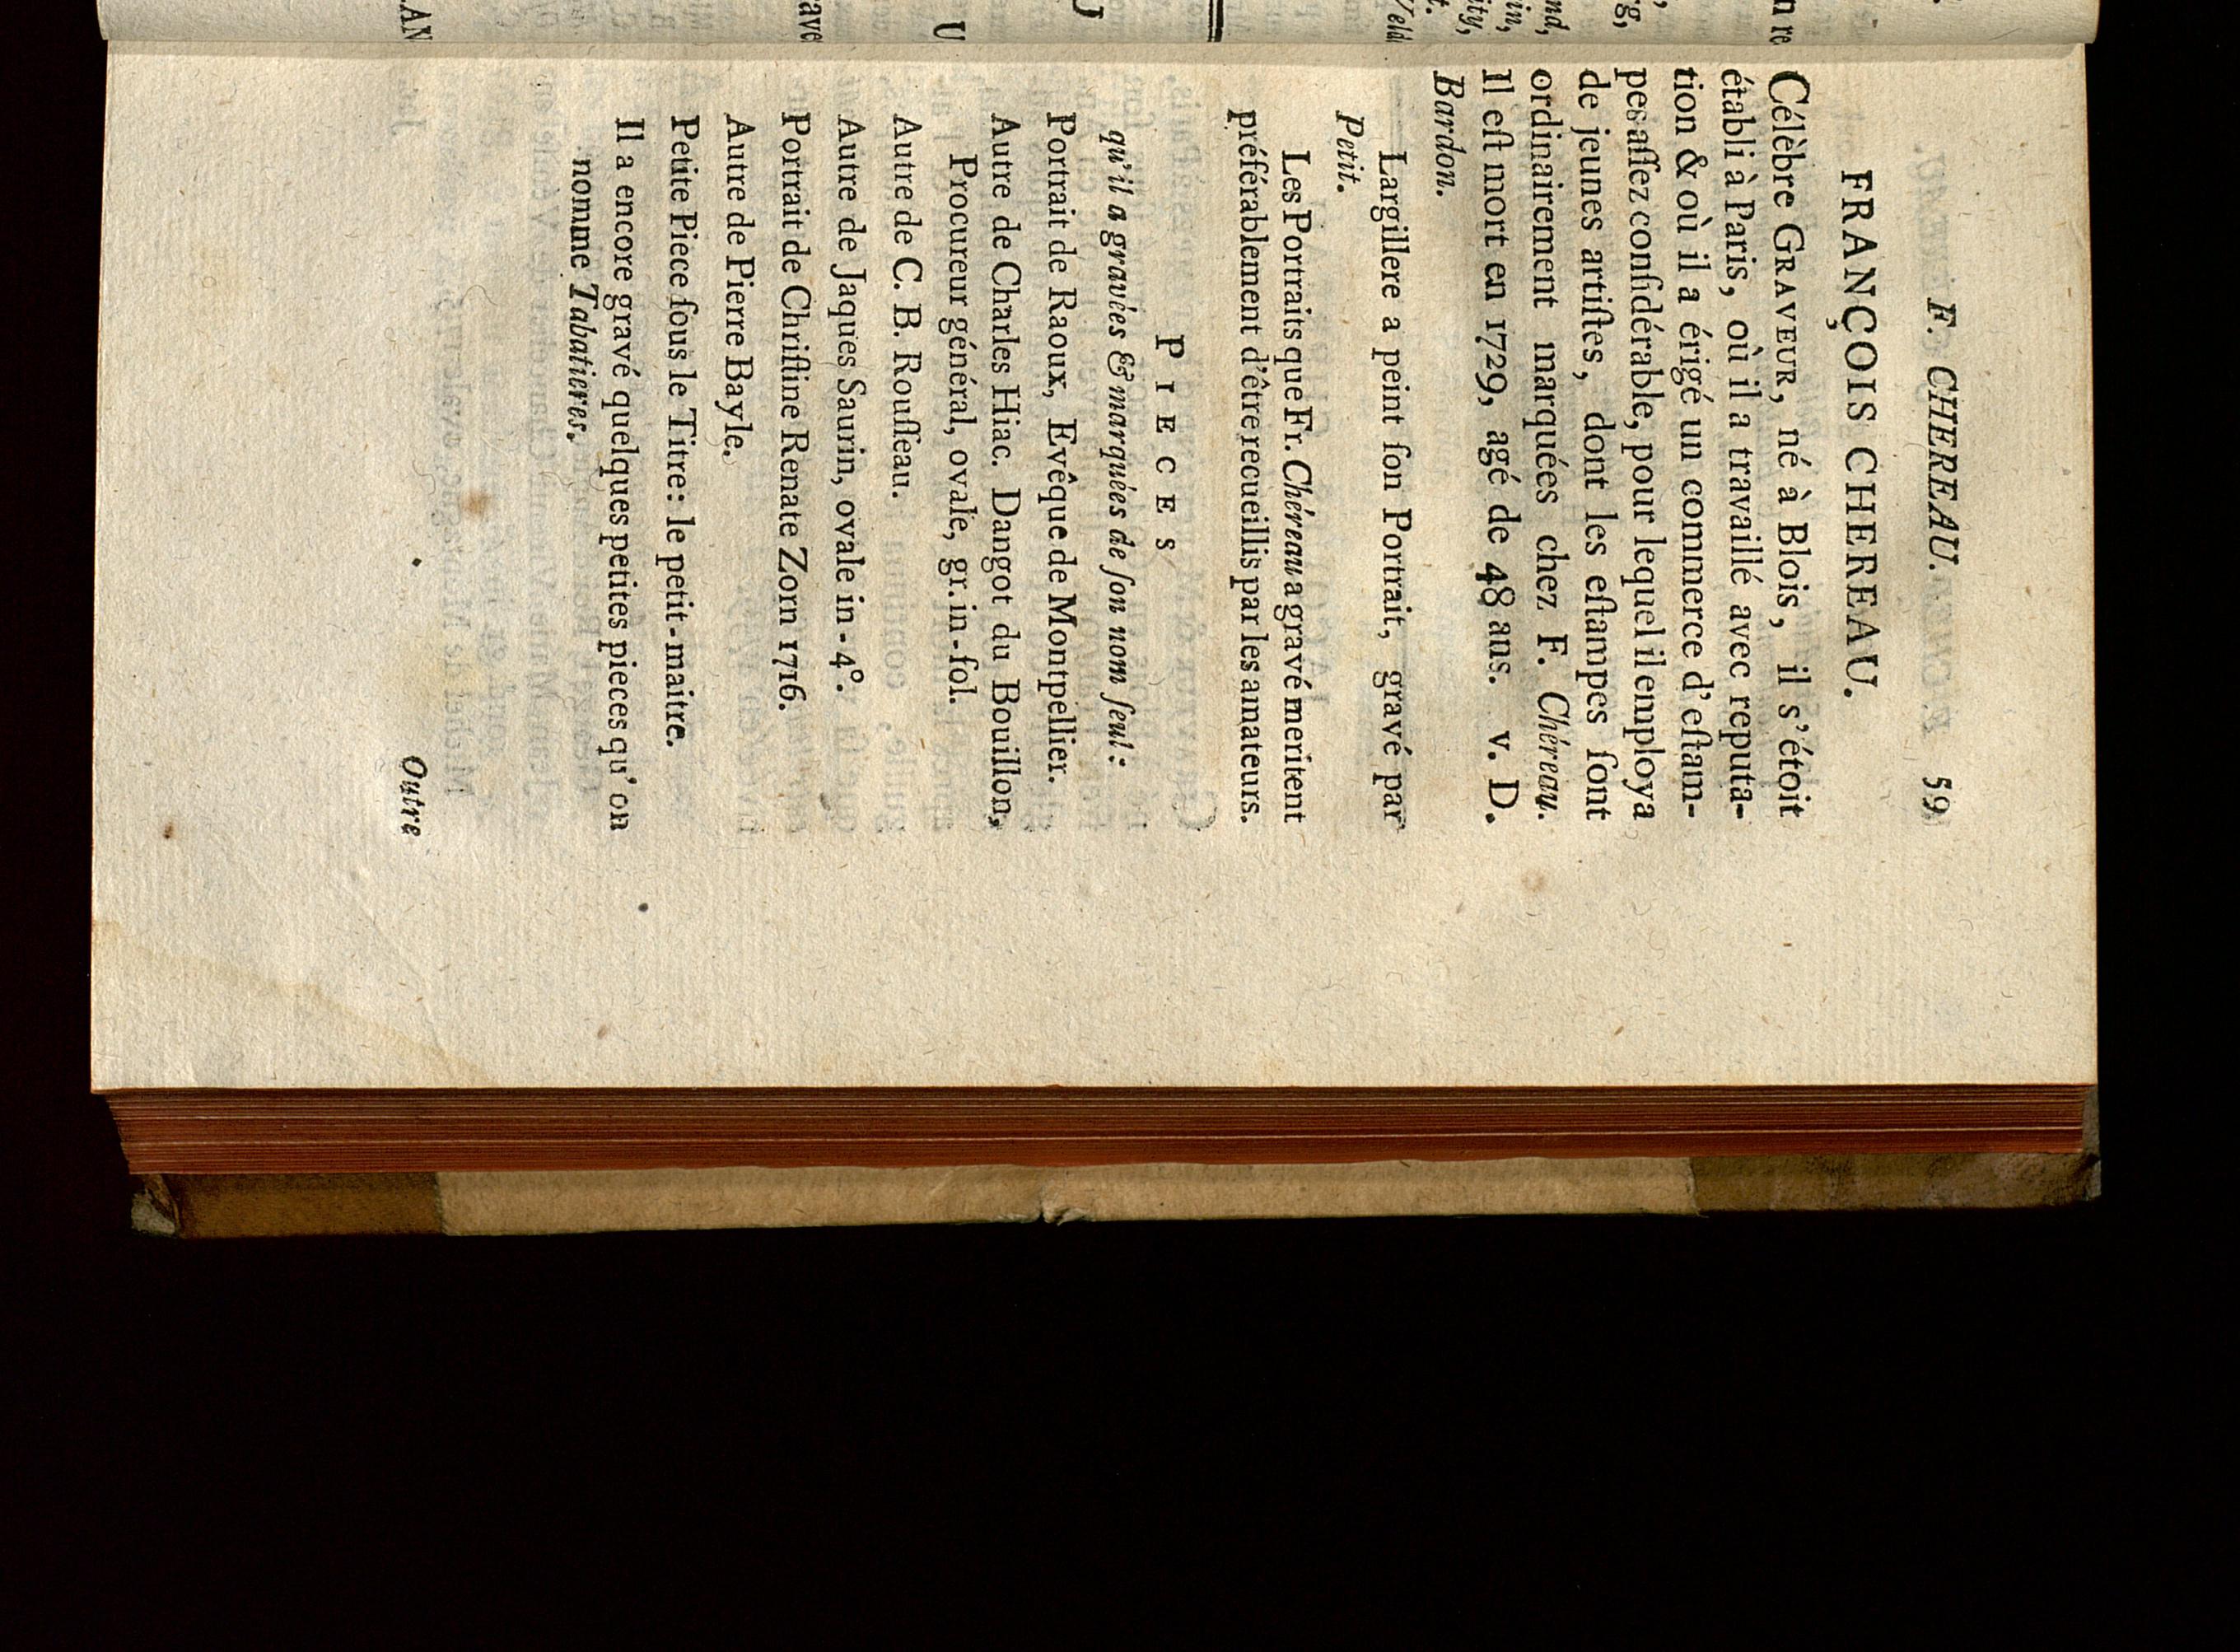 F. CHEREAU. 59
FRANÇOIS CHEREAU.
Célèbre GRAVEUR, né à Blois, il s'étoit
établi à Paris, où il a travaillé avec reputa-
tion & où il a érigé un commerce d'eſtam-
pes aſſez conſidérable, pour lequel il employa
de jeunes artiſtes, dont les eſtampes ſont
ordinairement marquées chez F. Chéreau.
Il eſt mort en 1729, agé de 48 ans. v. D.
Bardon.
Largillere a peint ſon Portrait, gravé par
Petit.
Les Portraits que Fr. Chéreau a gravé meritent
préférablement d'être recueillis par les amateurs.
PIECES
qu'il a gravées & marquées de ſon nom ſeul:
Portrait de Raoux, Evêque de Montpellier.
Autre de Charles Hiac. Dangot du Bouillon,
Procureur général, ovale, gr. in-fol.
Autre de C. B. Rouſſeau.
Autre de Jaques Saurin, ovale in-4°.
Portrait de Chriſtine Renate Zorn 1716.
Autre de Pierre Bayle.
Petite Piece ſous le Titre: le petit-maitre.
Il a encore gravé quelques petites pieces qu'on
nomme Tabatieres.
Outre